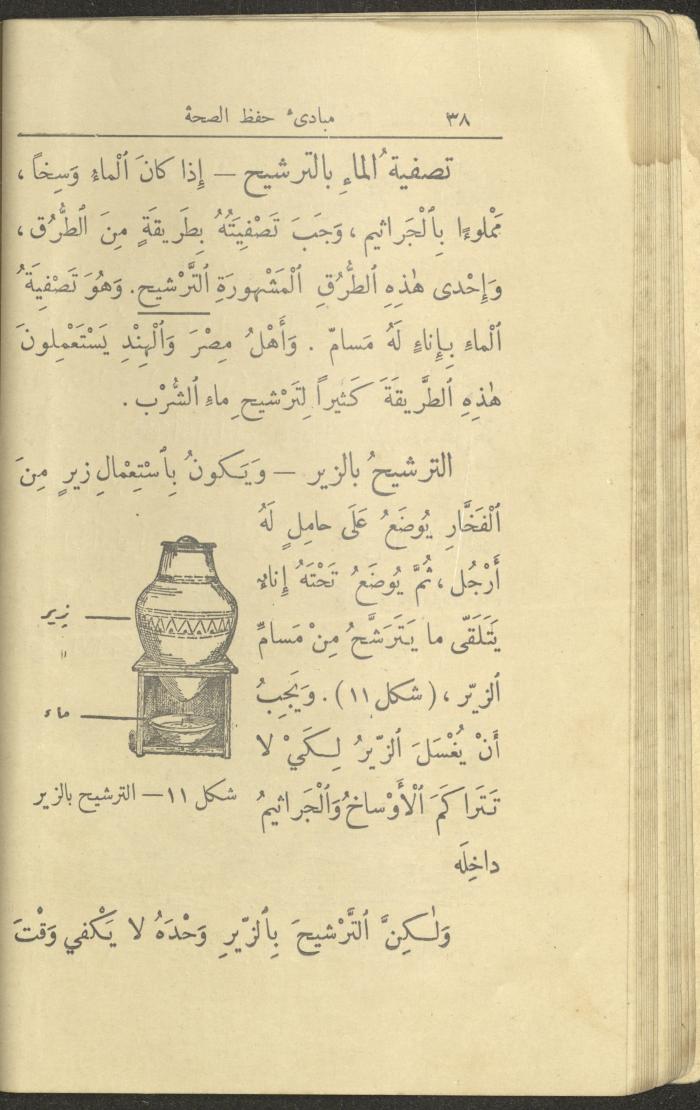 ٣٨ مبادئ حفظ الصحة
تصفيةُ الماءِ بالترشيح — إِذا كانَ ٱلْماءُ وَسِخاً ،
مَمْلوءًا بِٱلْجَراثيم ، وَجَبَ تَصْفِيَتُهُ بِطَريقَةٍ مِنَ ٱلطُّرُق ،
وَإِحْدى هٰذِهِ ٱلطُّرُقِ ٱلْمَشْهورَةِ ٱلتَّرْشيح. وَهُوَ تَصْفِيَةُ
ٱلْماءِ بِإِناءٍ لَهُ مَسامّ . وَأَهْلُ مِصْرَ وَٱلْهِنْدِ يَسْتَعْمِلونَ
هٰذِهِ ٱلطَّريقَةَ كَثيراً لِتَرْشيحِ ماءِ ٱلشُّرْب .
الترشيحُ بالزير — وَيَكونُ بِٱسْتِعْمالِ زيرٍ مِنَ
ٱلْفَخَّارِ يُوضَعُ عَلَى حامِلٍ لَهُ
أَرْجُل ، ثُمَّ يُوضَعُ تَحْتَهُ إِناءٌ
يَتَلَقّى ما يَتَرَشَّحُ مِنْ مَسامِّ
ٱلزّير ، (شكل ١١) . وَيَجِبُ
أَنْ يُغْسَلَ ٱلزّيرُ لِكَيْ لا
تَتَراكَمَ ٱلْأَوْساخُ وَٱلْجَراثيمُ
داخِلَه
زير
ماء
شكل ١١ — الترشيح بالزير
وَلٰكِنَّ ٱلتَّرْشيحَ بِٱلزّيرِ وَحْدَهُ لا يَكْفي وَقْتَ